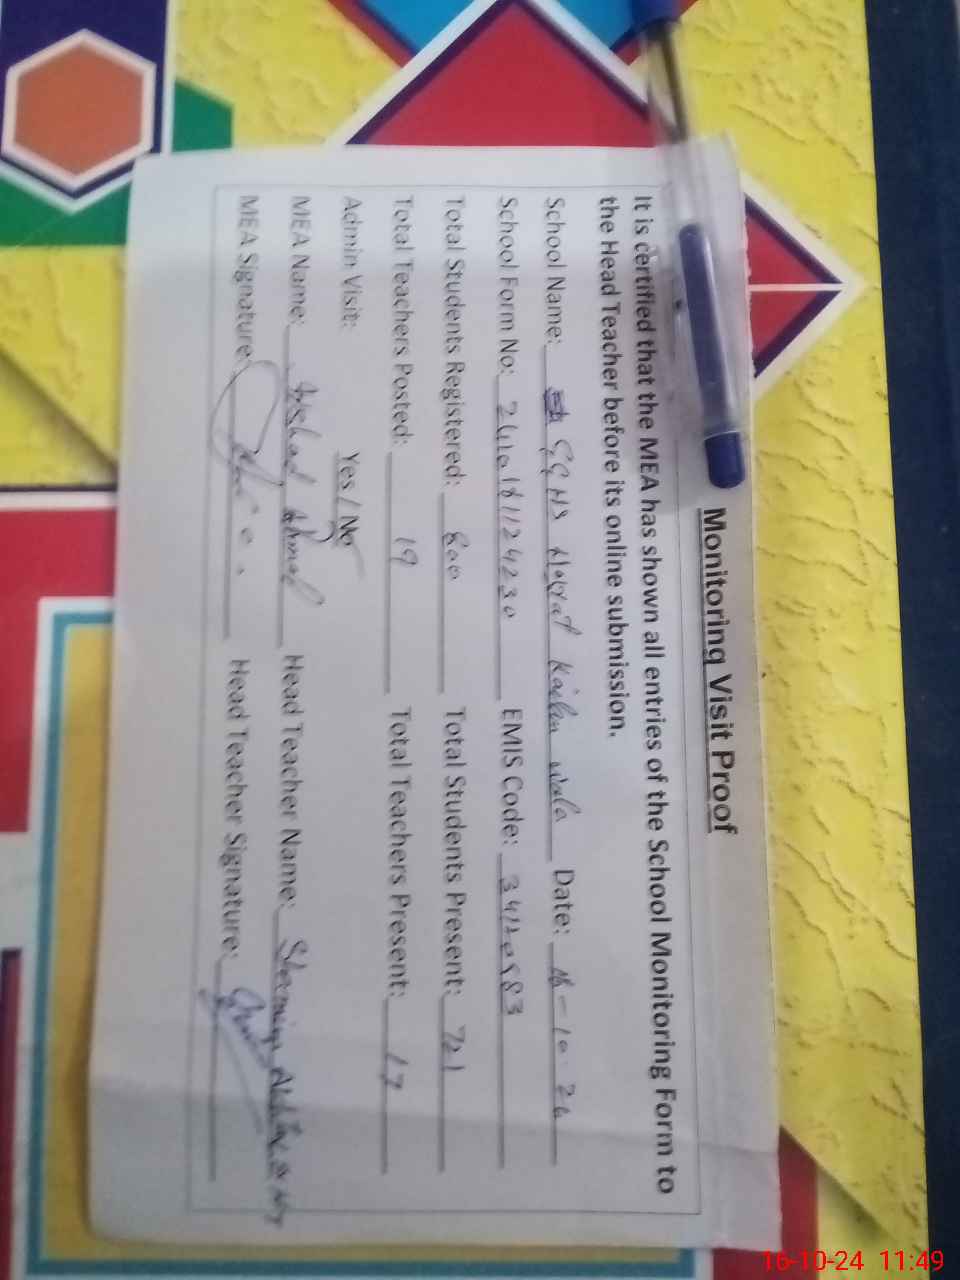 Monitoring Visit Proof
It is certified that the MEA has shown all entries of the School Monitoring Form to
the Head Teacher before its online submission.
School Name: GGHS Kailan wala Date: 16-10-24
School Form No: EMIS Code: 34120583
Total Students Registered: 800 Total Students Present: 721
Total Teachers Posted: 19 Total Teachers Present: 17
Admin Visit: Yes / No
MEA Name: Arshad Ahmad Head Teacher Name:
MEA Signature: Head Teacher Signature:
16-10-24 11:49